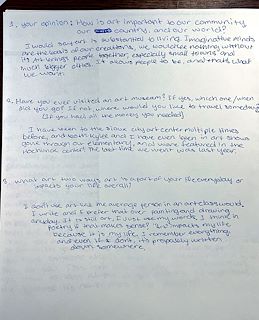 1. your opinion: How is art important to our community
our country, and our world?
I would say art is substantial to living. Imaginative minds
are the basis of our creations, we would be nothing without
its. Art brings people together, especially small towns and
much bigger cities. It allows people to be, and thats what
we want.
2. Have you ever visited an art museum? If yes, which one/when
did you go? If not, where would you like to travel someday
(if you had all the money you needed)
I have been to the art center multiple times
before, and with and I have even been in art shows
gone through our elementary, and were featured in the
center. The last time we went was last year.
3. What are two ways art is a part of your life everyday or
impacts your life overall?
I don't use art like the average person in an art class would,
I write and I prefer that over painting and drawing
anyday. It is still art, I just use my words, I think in
poetry if that makes sense? It impacts my life
because it is my life, I remember everything,
and even if I dont, its propably written
down somewhere.